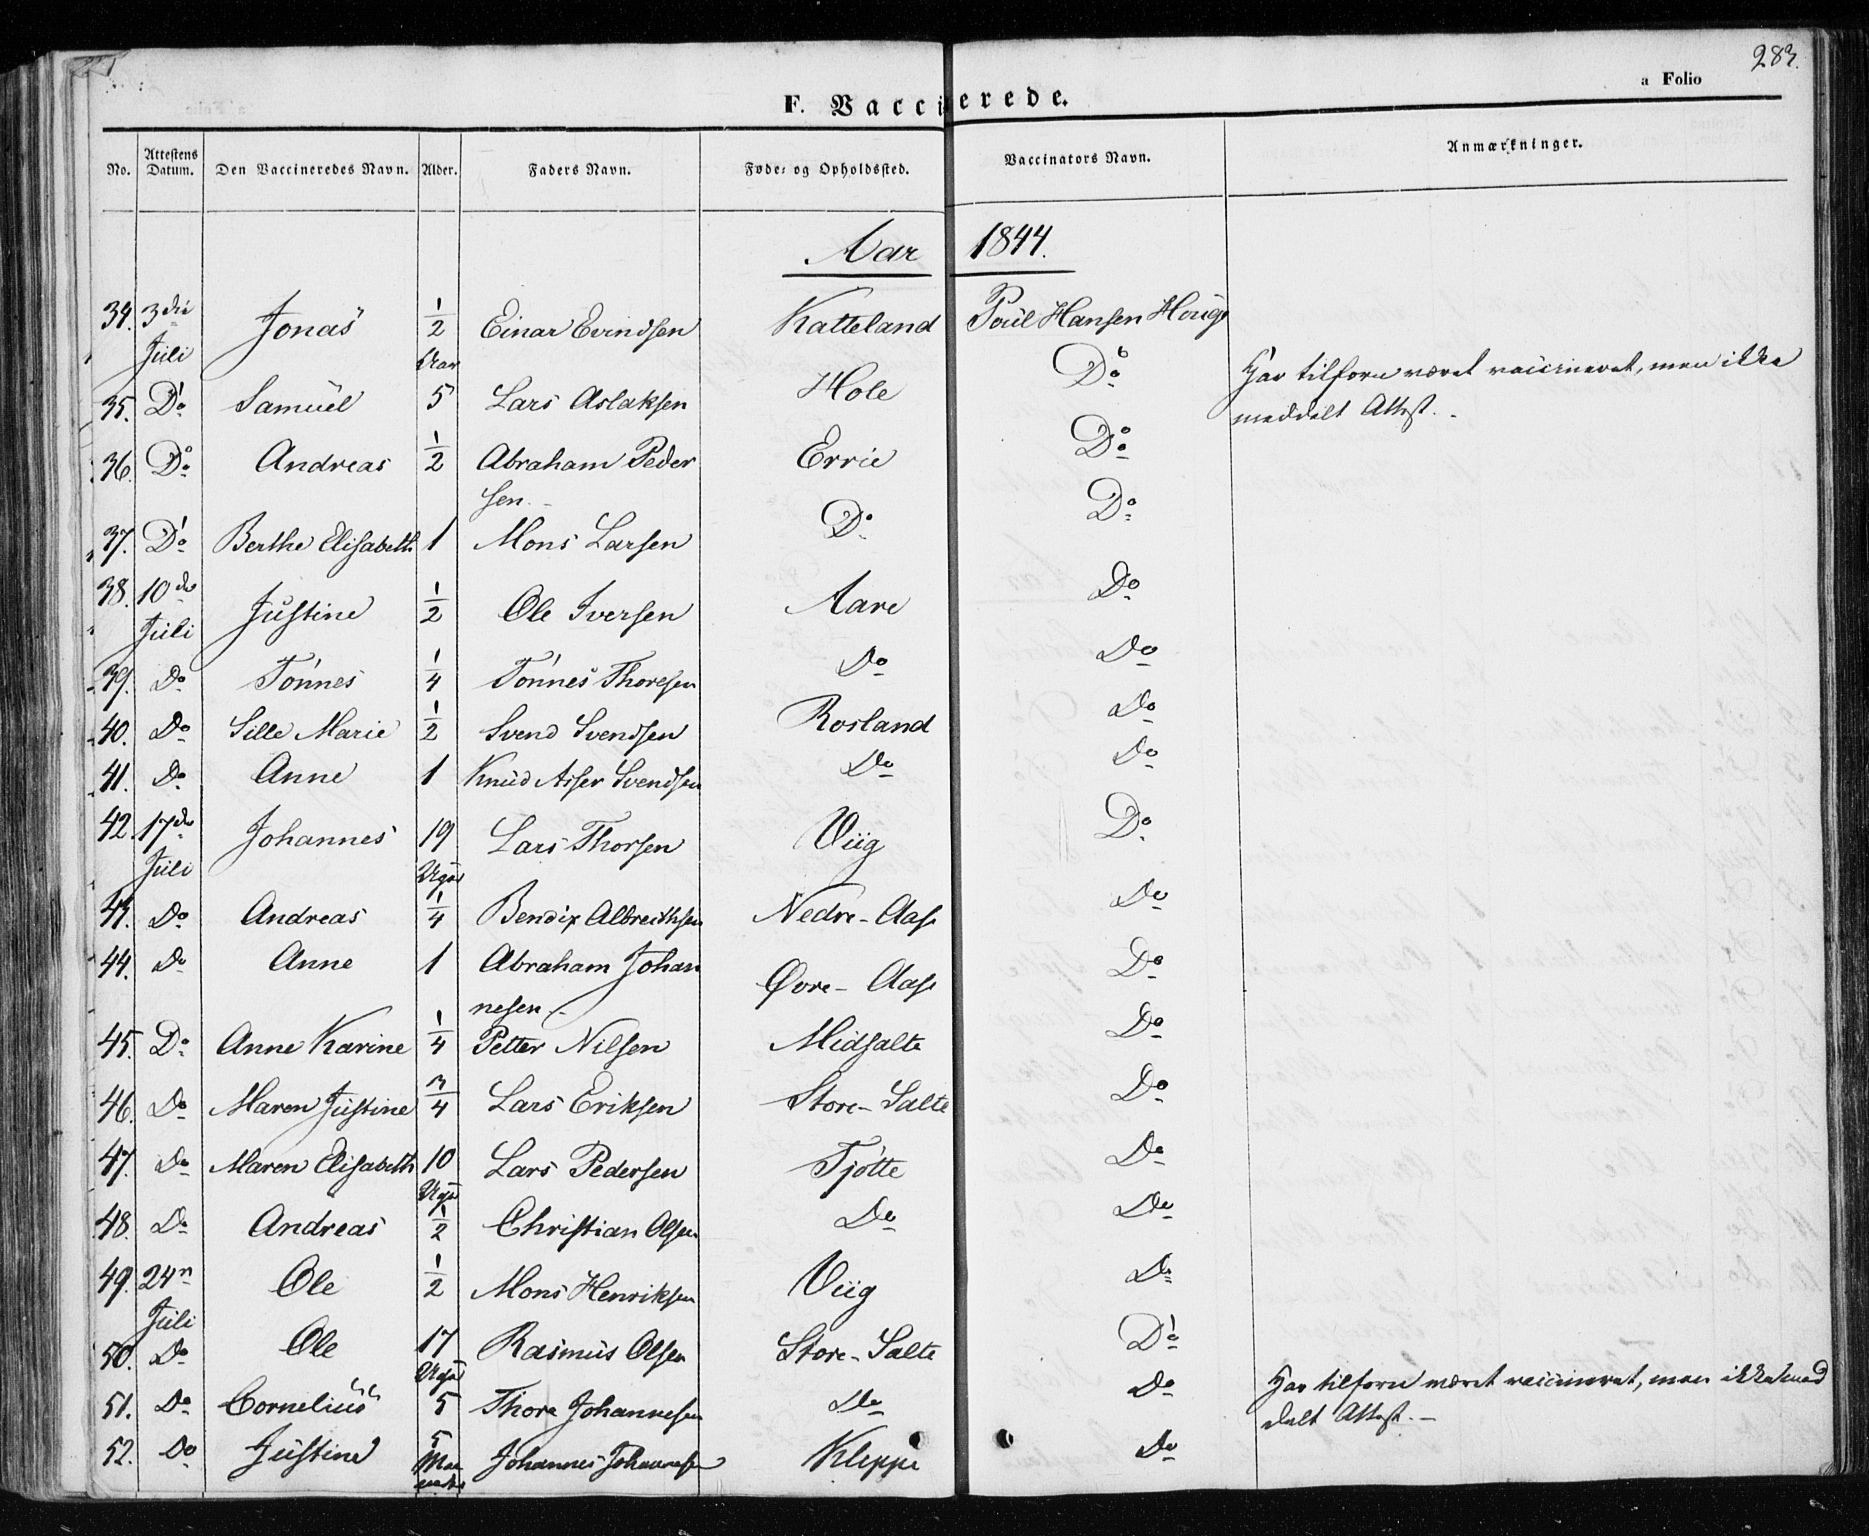 283.
a Folio
F. Vaccinerede.
No. Attestens Datum. Den Vaccineredes Navn. Alder. Faders Navn. Føde- og Opholdssted. Vaccinators Navn. Anmærkninger.
Aar 1844.
34. 3die Juli Jonas 1/2 Aar Einar Evindsen Katteland Poul Hansen Houge
35. Do Samuel 5 Lars Aslaksen Hole Do Har tilforn været vaccineret, men ikke
meddelt Attest. -
36. Do Andreas 1/2 Abraham Peder Errie Do
sen. -
37. Do Berthe Elisabeth 1 Mons Larsen Do Do
38. 10de Juli Justine 1/2 Ole Iversen Aare Do
39. Do Tønnes 1/4 Tønnes Thoresen Do Do
40. Do Sille Marie 1/2 Svend Svendsen Rosland Do
41. Do Anne 1 Knud Svendsen Do Do
42. 17de Juli Johannes 19 Uger Lars Thorsen Viig Do
43. Do Andreas 1/4 Bendix Albrethsen Nedre-Aase Do
44. Do Anne 1 Abraham Johan Øvre-Aase Do
nesen. -
45. Do Anne Karine 1/4 Petter Nilsen Midsalte Do
46. Do Maren Justine 3/4 Lars Eriksen Store-Salte Do
47. Do Maren Elisabeth 10 Uger Lars Pedersen Tjøtte Do
48. Do Andreas 1/2 Christian Olsen Do Do
49. 24n Juli Ole 1/2 Mons Henriksen Viig Do
50. Do Ole 17 Uger Rasmus Olsen Store-Salte Do
51. Do Cornelius 5 Thore Johannesen Do Do Har tilforn været vaccineret, men ikke med
delt Attest. -
52. Do Justine 5 Maaneder Johannes Johannesen Kleppe Do